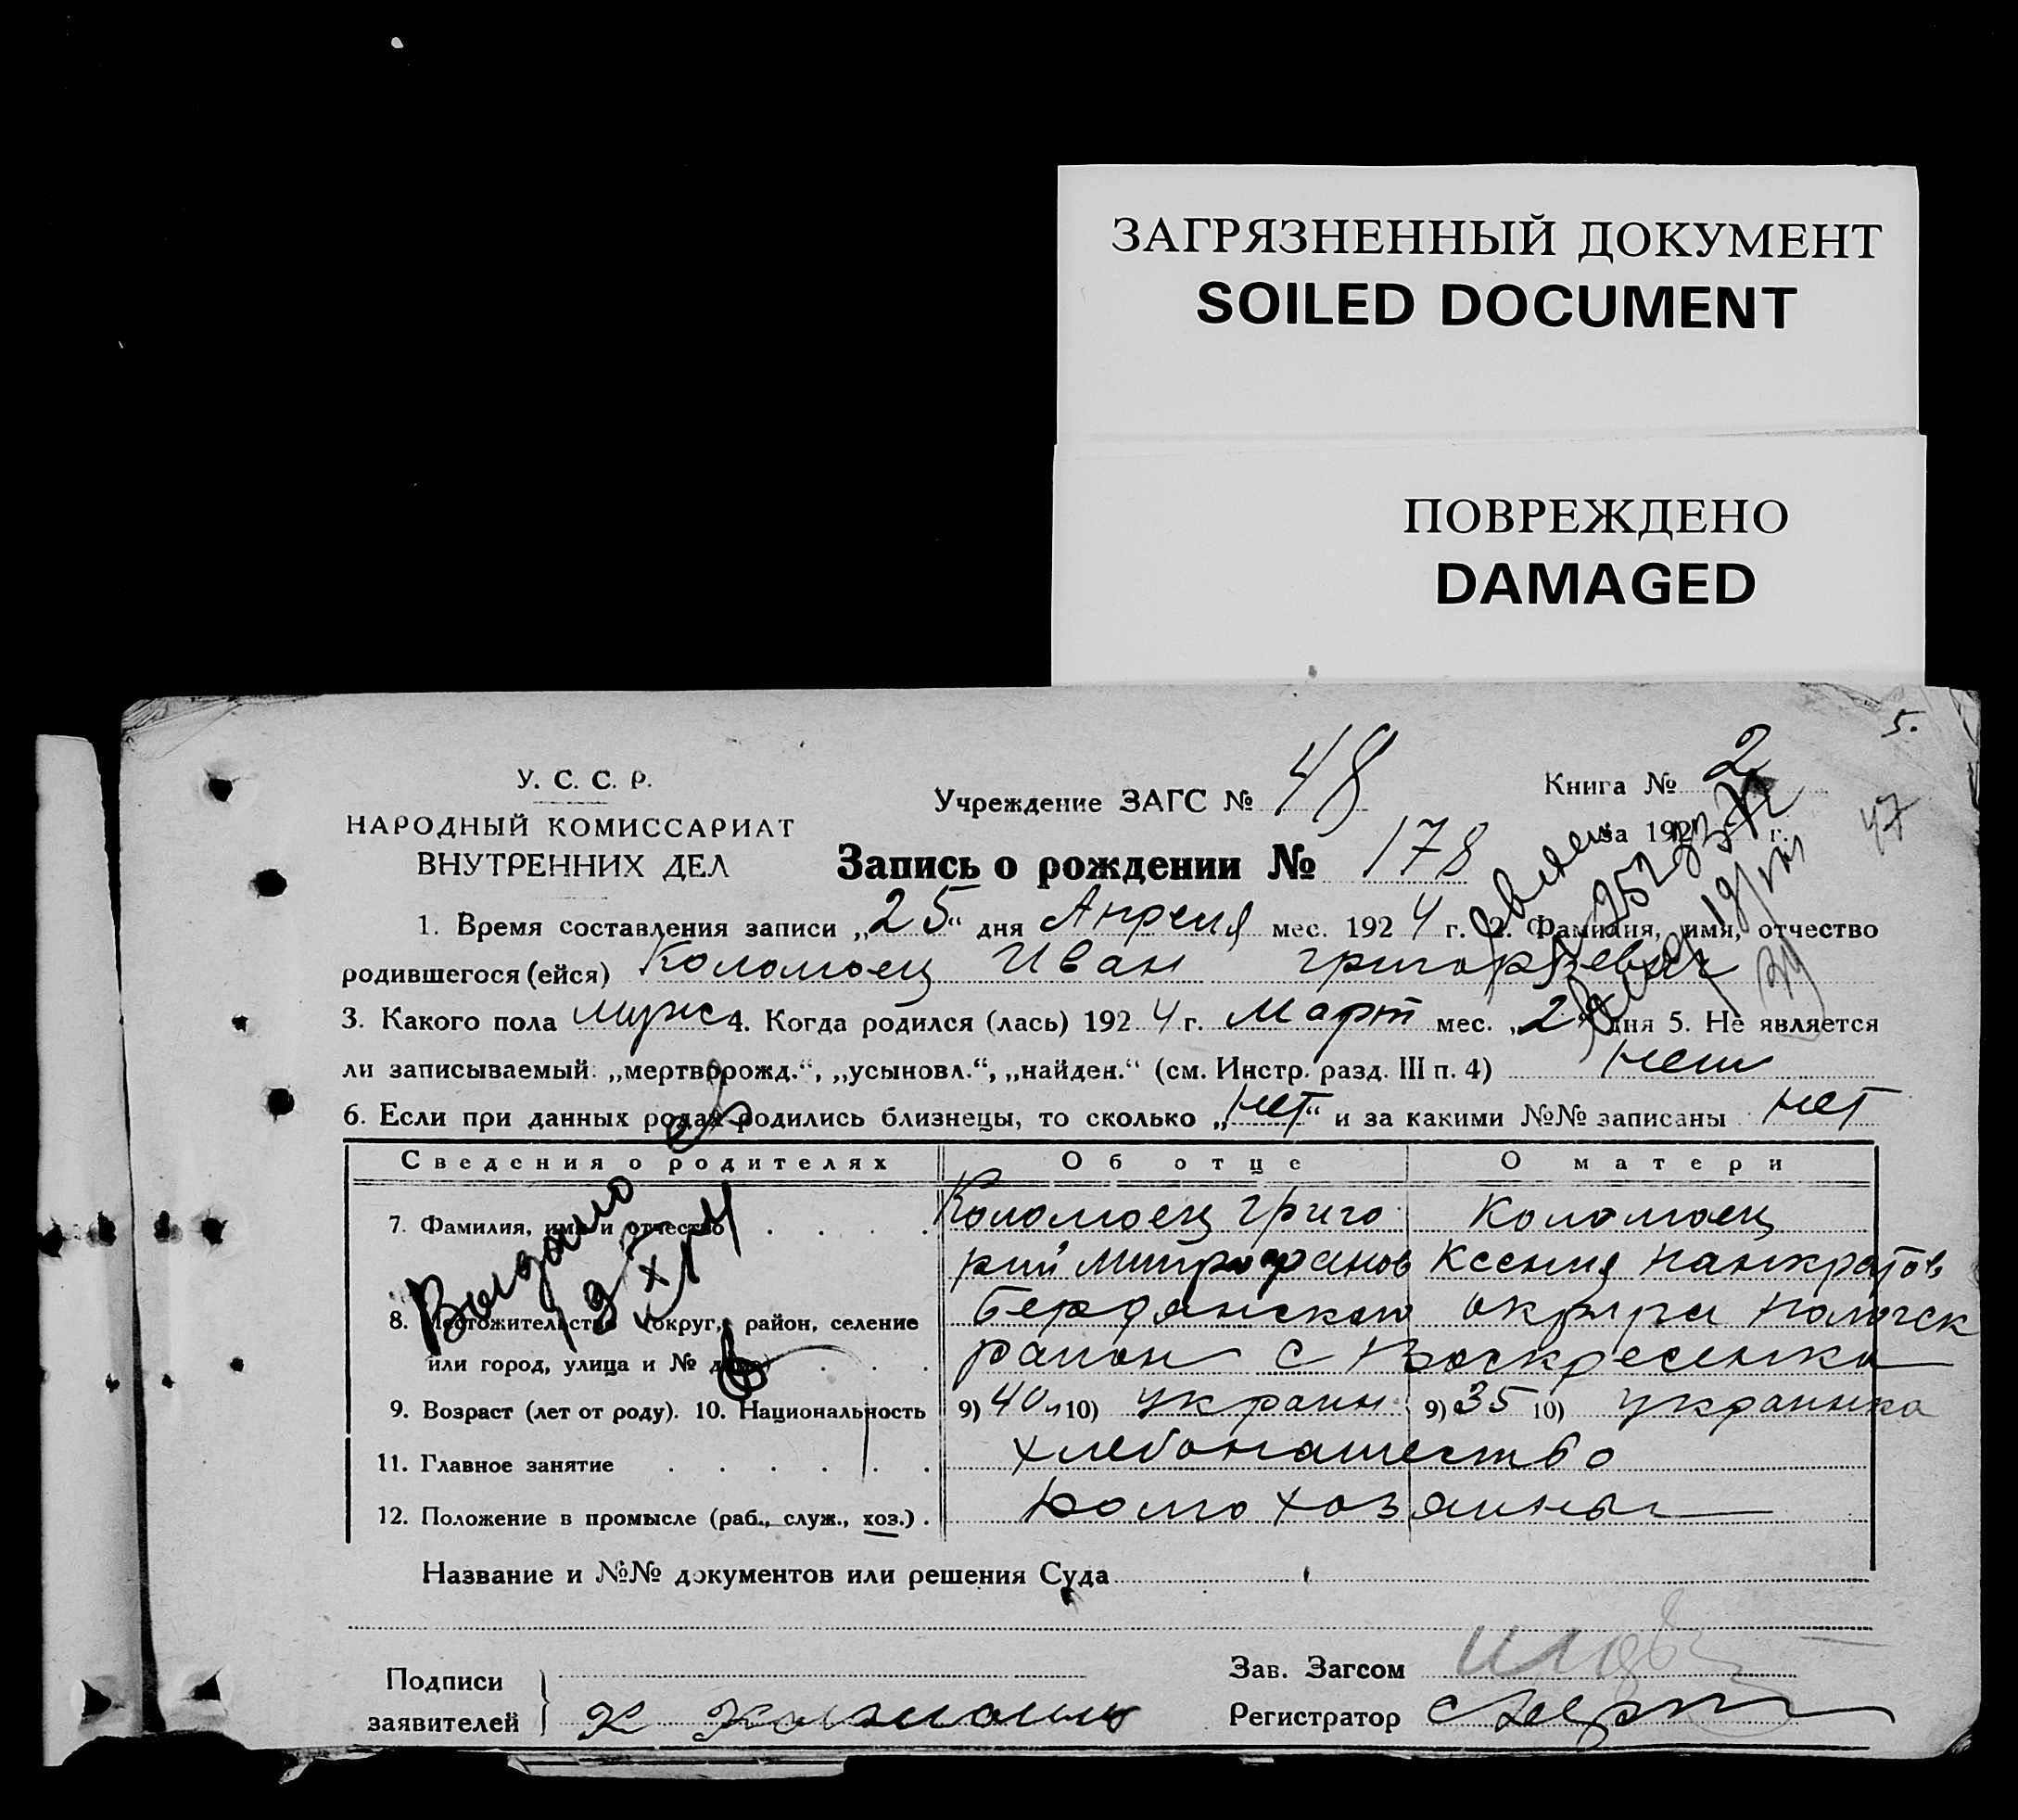 ЗАГРЯЗНЕННЫЙ ДОКУМЕНТ
SOILED DOCUMENT
ПОВРЕЖДЕНО
DAMAGED
5.
У. С. С. Р.
НАРОДНЫЙ КОМИССАРИАТ
ВНУТРЕННИХ ДЕЛ
Учреждение ЗАГС № 48
Книга № 2
за 192 г.
47
Запись о рождении № 178
1. Время составления записи „25“ дня Апреля мес. 1924 г. 2. Фамилия, имя, отчество
родившегося (ейся) Коломоец Иван Григорьевич
3. Какого пола мужс 4. Когда родился (лась) 1924 г. Март мес. „2 дня 5. Не является
ли записываемый: „мертворожд.“, „усыновл.“, „найден.“ (см. Инстр. разд. III п. 4) нет
6. Если при данных родах родились близнецы, то сколько „нет“ и за какими №№ записаны нет
Сведения о родителях Об отце О матери
7. Фамилия, имя и отчество . . . . Коломоец Григо Коломоец
рий Митрофанов Ксения Панкратов
8. Местожительство (округ, район, селение Бердянского округа Пологск
или город, улица и № дома) . . . район с Воскресенка
9. Возраст (лет от роду). 10. Национальность 9) 40 л 10) украин 9) 35 10) украинка
11. Главное занятие . . . . . . хлебопашество
12. Положение в промысле (раб., служ., хоз.) . домохозяины
Выдано
Название и №№ документов или решения Суда
Подписи
заявителей
Зав. Загсом
Регистратор